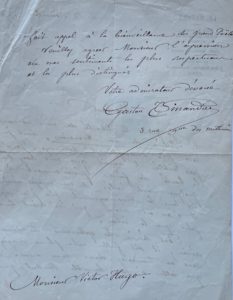 fait appel à la bienveillance du grand Poète
Veuillez agréer Monsieur l'expression
de mes sentiments les plus respectueux
et les plus distingués
Votre admirateur dévoué
Gaston
3 rue
Monsieur Victor Hugo.